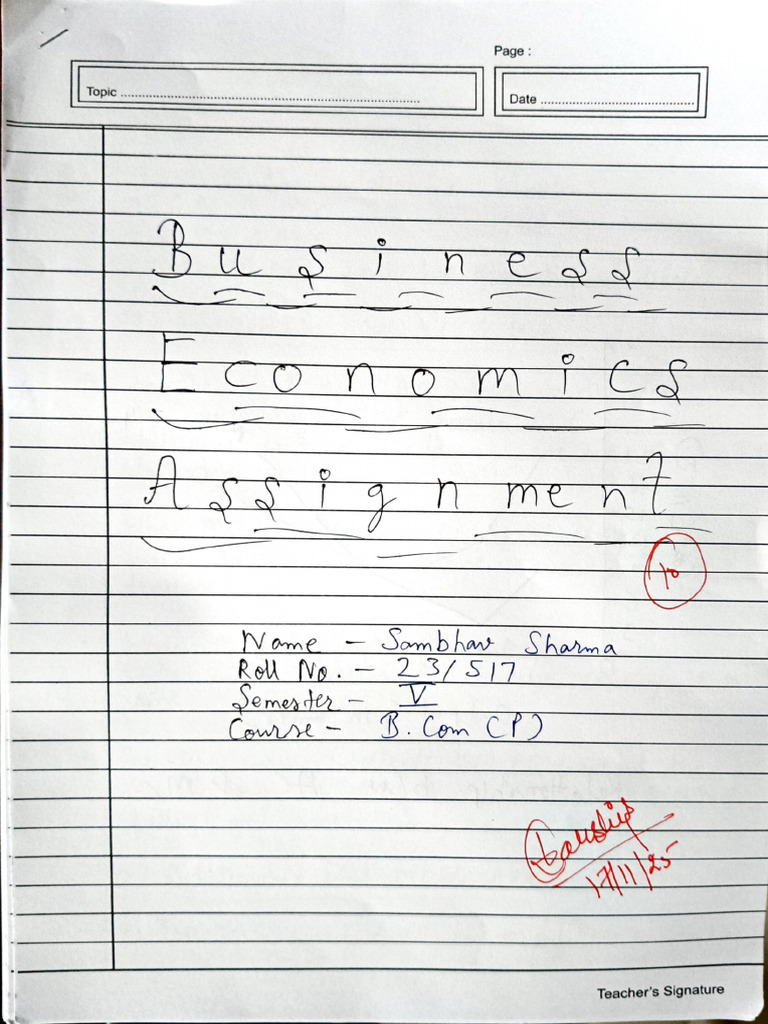 Page :
Topic ............................................................................................ Date ............................................
Business
Economics
Assignment
10
Name - Sambhav Sharma
Roll No. - 23/517
Semester - V
Course - B. Com (P)
17/11/25
Teacher's Signature